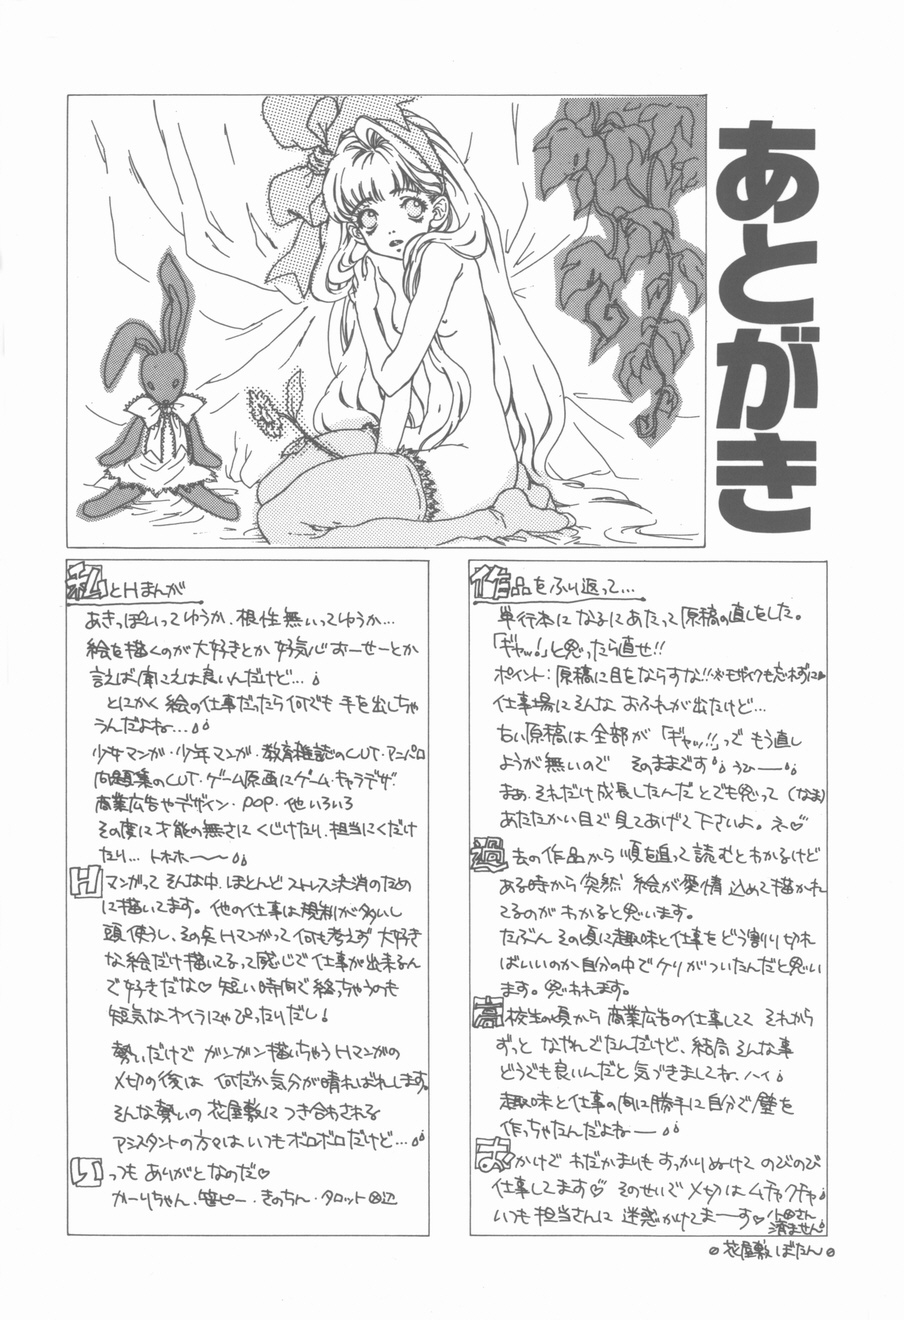 あとがき
作品をふり返って…
単行本になるにあたって原稿の直しをした。
「ギャッ!」と思ったら直せ!!
ポイント:原稿に目をならすな!!※モザイクも忘れずに
仕事場にそんな おふれが出たけど…
古い原稿は全部が「ギャッ!!」で もう直し
ようが無いので そのままです うひーー
まぁ、それだけ成長したんだとでも思って(なま)
あたたかい目で見てあげて下さいよ。ネ♡
過去の作品から順を追って読むとわかるけど
ある時から突然 絵が愛情込めて描かれ
てるのが わかると思います。
たぶん その頃に趣味と仕事をどう割り切れ
ばいいのか自分の中でケリがついたんだと思い
ます。思われます。
高校生の頃から 商業広告の仕事してて それから
ずっと なやんでたんだけど、結局そんな事
どうでも良いんだと気づきましてね、ハイ
趣味と仕事の間に勝手に自分で壁を
作っちゃたんだよねー
おかげで わだかまりも すっかりぬけて のびのび
仕事してます♡ そのせいで〆切はムチャクチャ
いつも担当さんに 迷惑かけてまーーす♡ 小田さん
済ません
花屋敷ぼたん
私とHまんが
あきっぽいってゆうか、根性無いってゆうか…
絵を描くのが大好きとか 好気心おーせーとか
言えば聞こえは良いんだけど…
とにかく 絵の仕事だったら何でも 手を出しちゃ
うんだよね…
少女マンガ・少年マンガ・教育雑誌のCUT・アニパロ
問題集のCUT・ゲーム原画にゲーム・キャラデザ・
商業広告やデザイン・POP・他いろいろ
その度に才能の無さに くじけたり、担当にくだけ
たり… トホホ〜〜
Hマンガって そんな中、ほとんど ストレス決消のため
に描いてます。他の仕事は規制が多いし
頭使うし、その点Hマンガって何も考えず 大好き
な絵だけ描いてるって感じで仕事が出来るん
で好きだな♡ 短い時間で終っちゃうのも
短気なオイラにゃぴったりだし!
勢いだけで ガンガン描いちゃうHマンガの
〆切の後は 何だか気分が晴ればれします。
そんな勢いの 花屋敷につき合わされる
アシスタントの方々は、いつもボロボロだけど…
いつも ありがとなのだ♡
かーりちゃん、笹ピー・きのちん・タロット